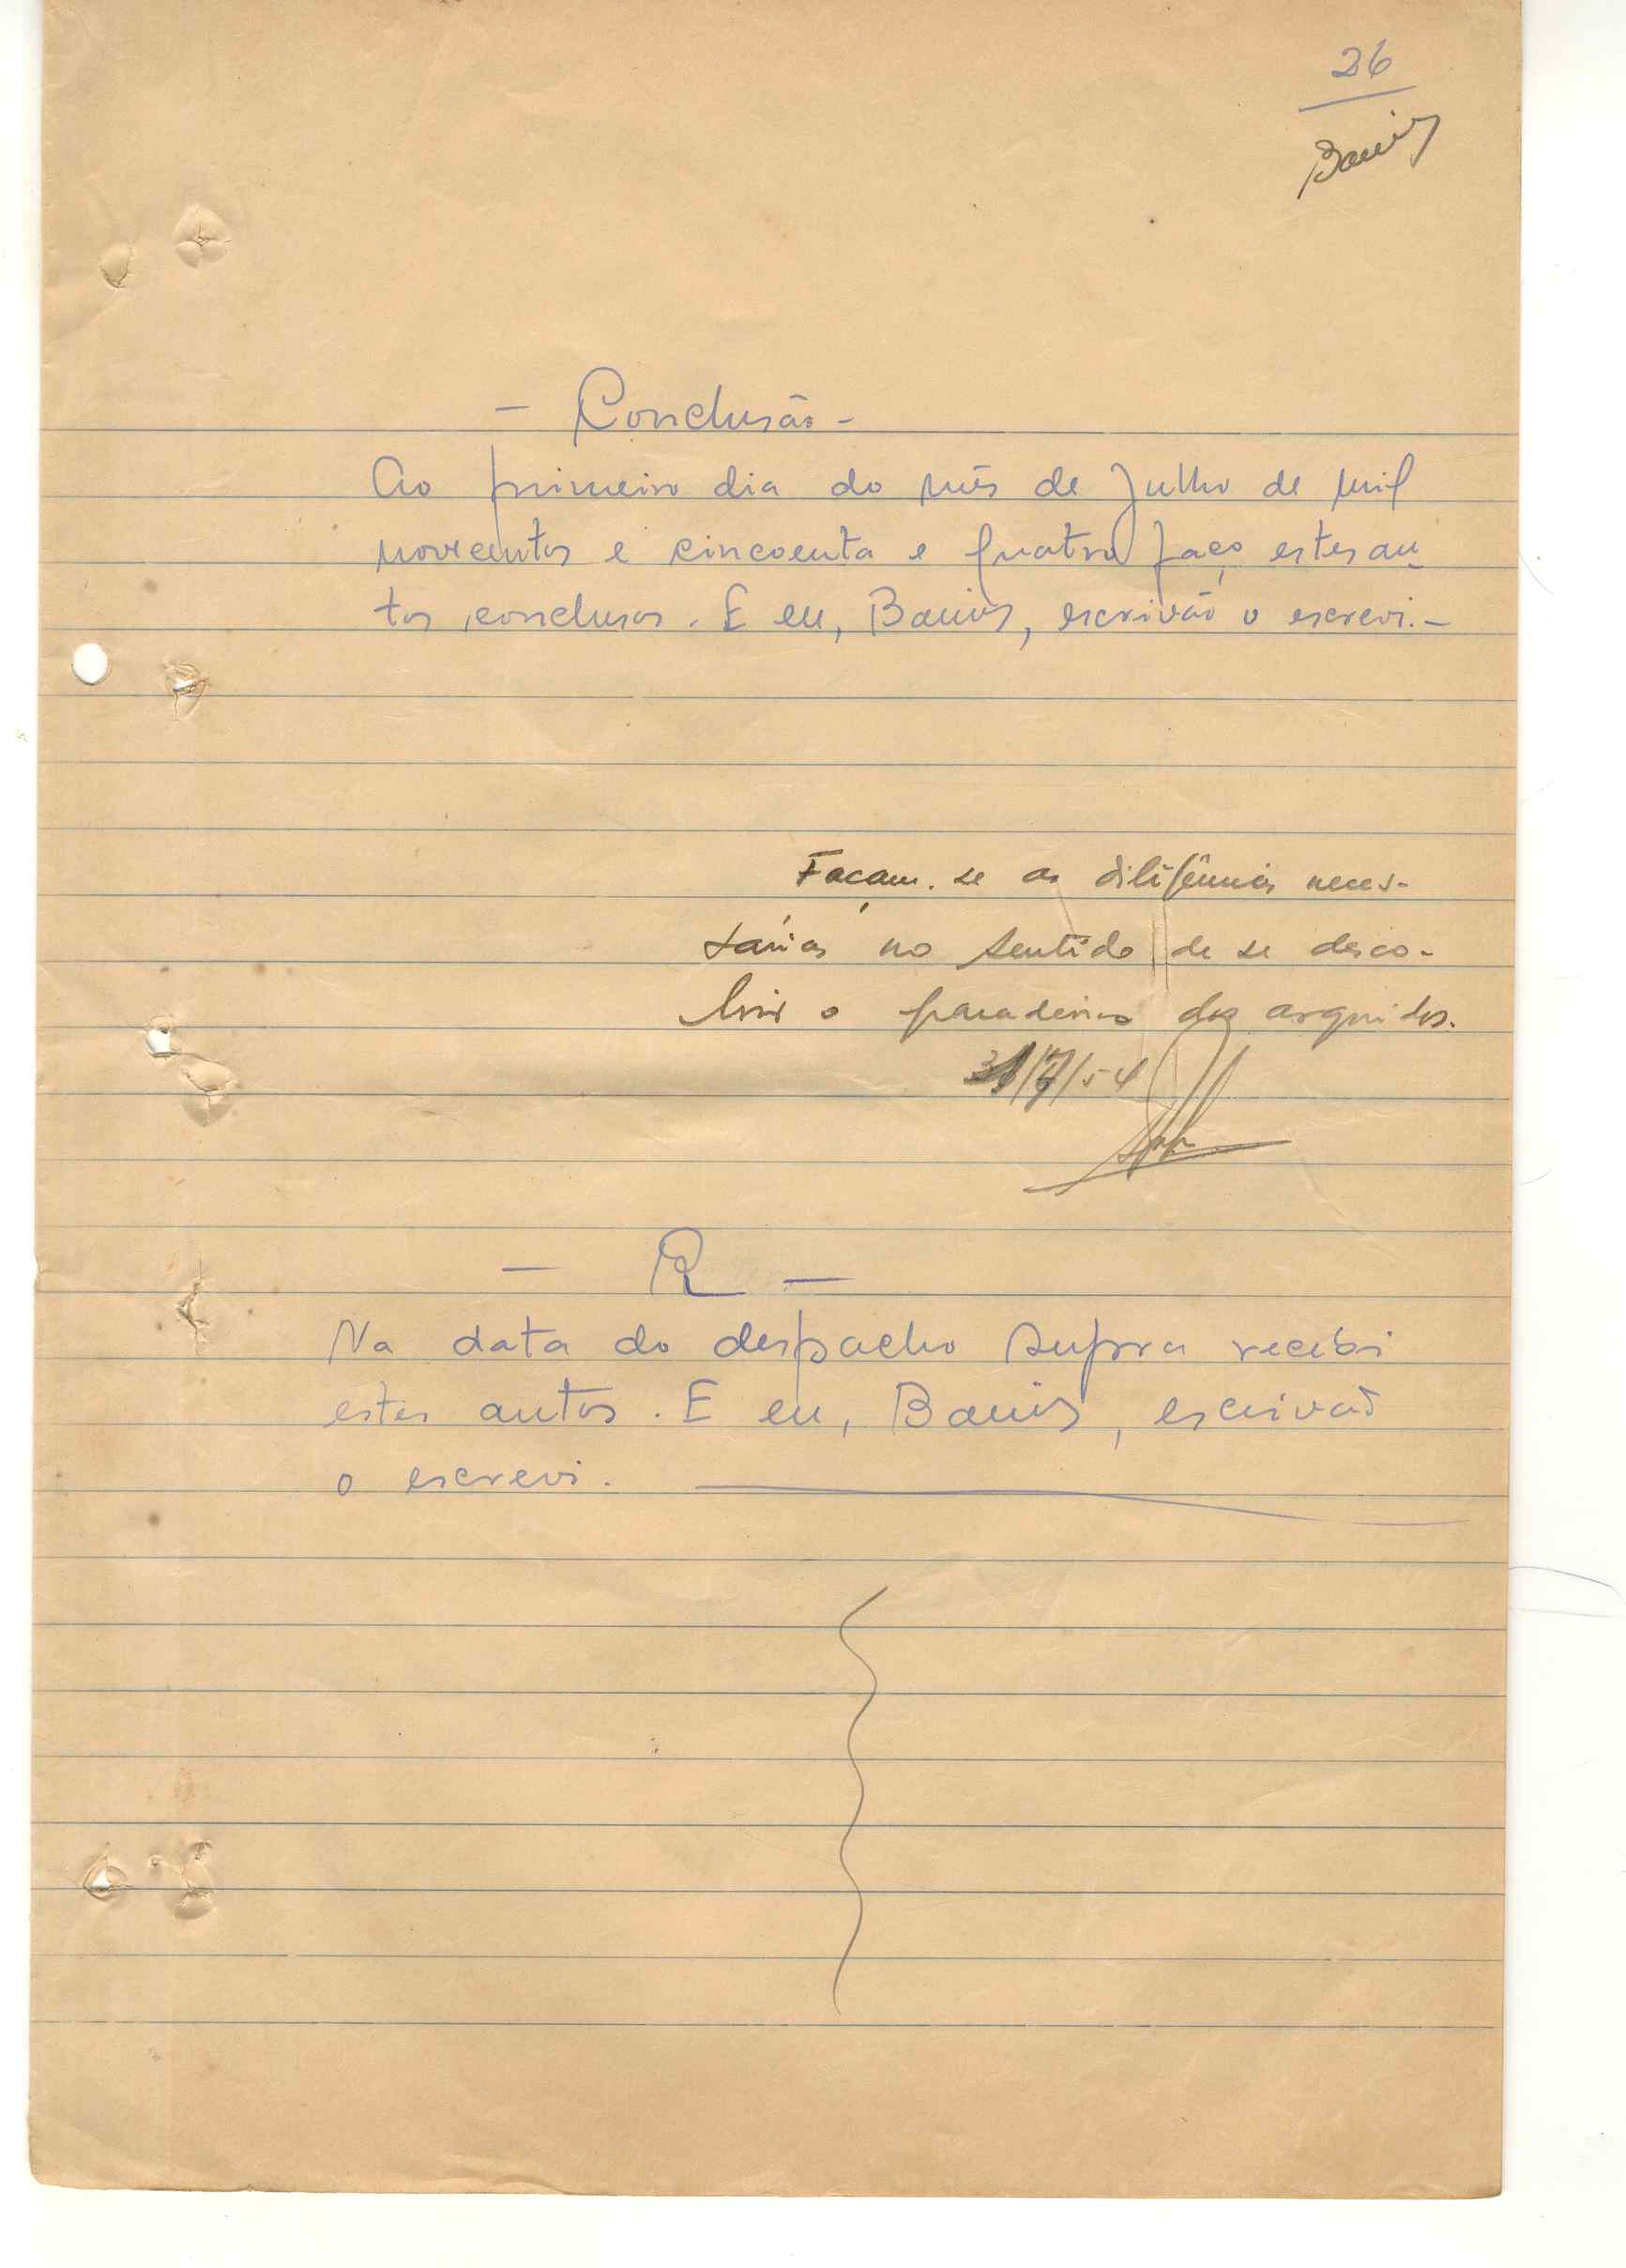 26
- Conclusão -
Ao primeiro dia do mês de Julho de mil
novecentos e cincoenta e quatro faço estes au-
tos conclusos. E eu, , escrivão o escrevi. -
Façam-se as diligências neces-
sárias no sentido de se desco-
brir o paradeiro dos arguidos.
/7/54
- R -
Na data do despacho supra recebi
estes autos. E eu, , escrivão
o escrevi.